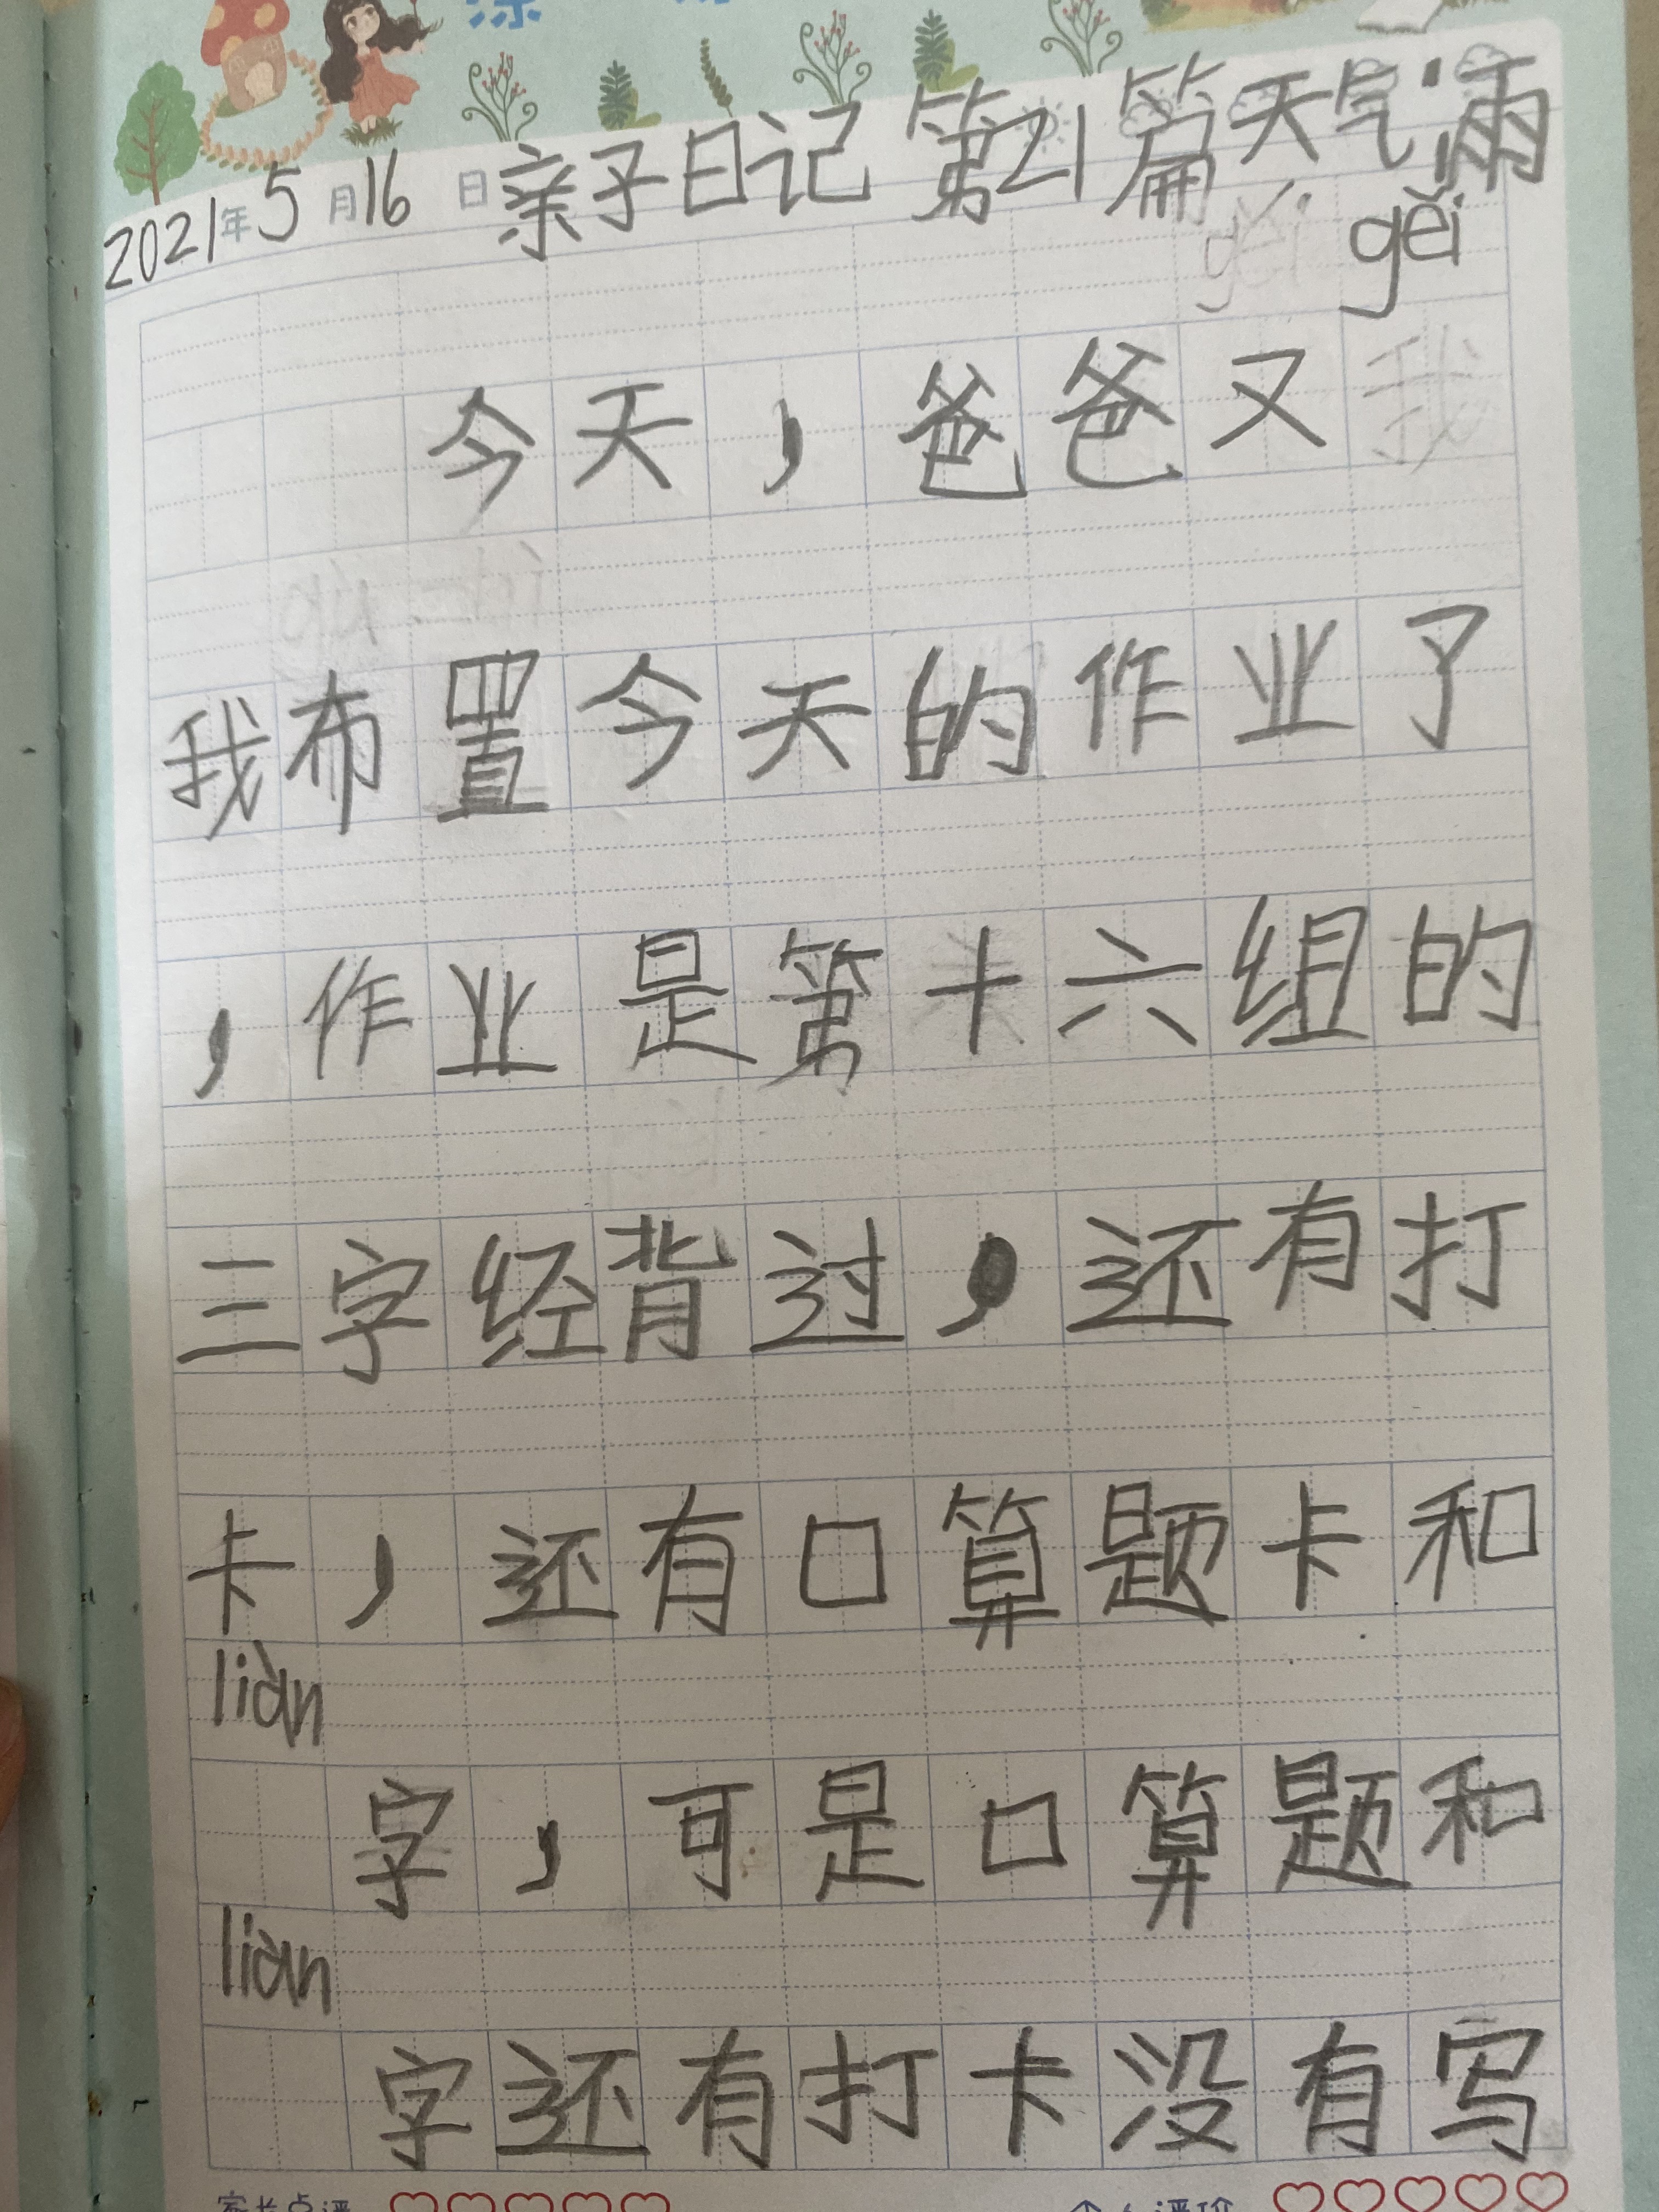 2021年5月16日亲子日记 第21篇天气:雨
gěi
今天,爸爸又
我布置今天的作业了
,作业是第十六组的
三字经背过,还有打
卡,还有口算题卡和
liàn
字,可是口算题和
liàn
字还有打卡没有写